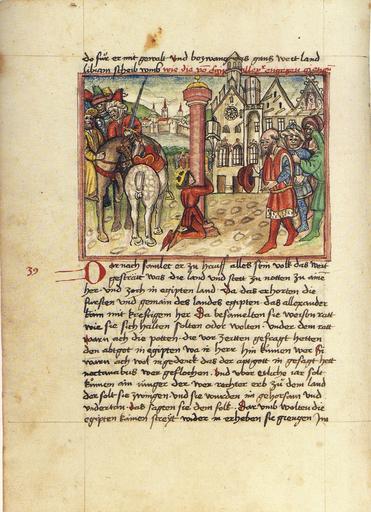 do für er mit gewalt und bezwang das gans wett land
libiam schrib wmb wie die vō
39
Dar nach samlet er zu hauff alles sein volk das weit
gestrait was die land und stett zu notten zu aine
her und zoch in egipten land Da das erhorten die
fursten und gemain des landes egipten das allexander
kam mit krefftigem her Da besamelten sie weysen ratt
wie sie sich halten solten oder wolten under dem ratt
warn ach die potten die vor zeitten gefragt hetten
den abtgot in egipten wa ir herr hin kumen wer Si
warn ach wol ingedenck das der apgott in gesagt hett
nectanabus wer geflochen und uber etliche iar solt
kumen ain iunger der wer rechter erb zu dem land
der solt sie zwingen und sie wurden im gehorsam und
undertan das sagten sie dem folk Dar umb wolten die
egipten kainen streyt wider in erheben sie giengen im